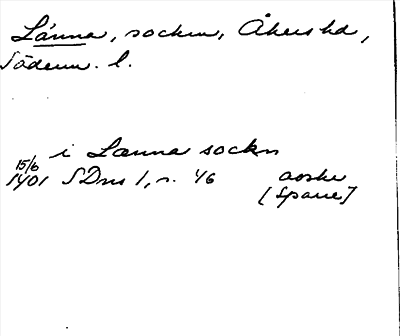 Länna, socken, Åkers hd,
Söderm. l.
i Lænna sockn
15/6
1401 SDns 1, n. 46 avskr
[Sparre]